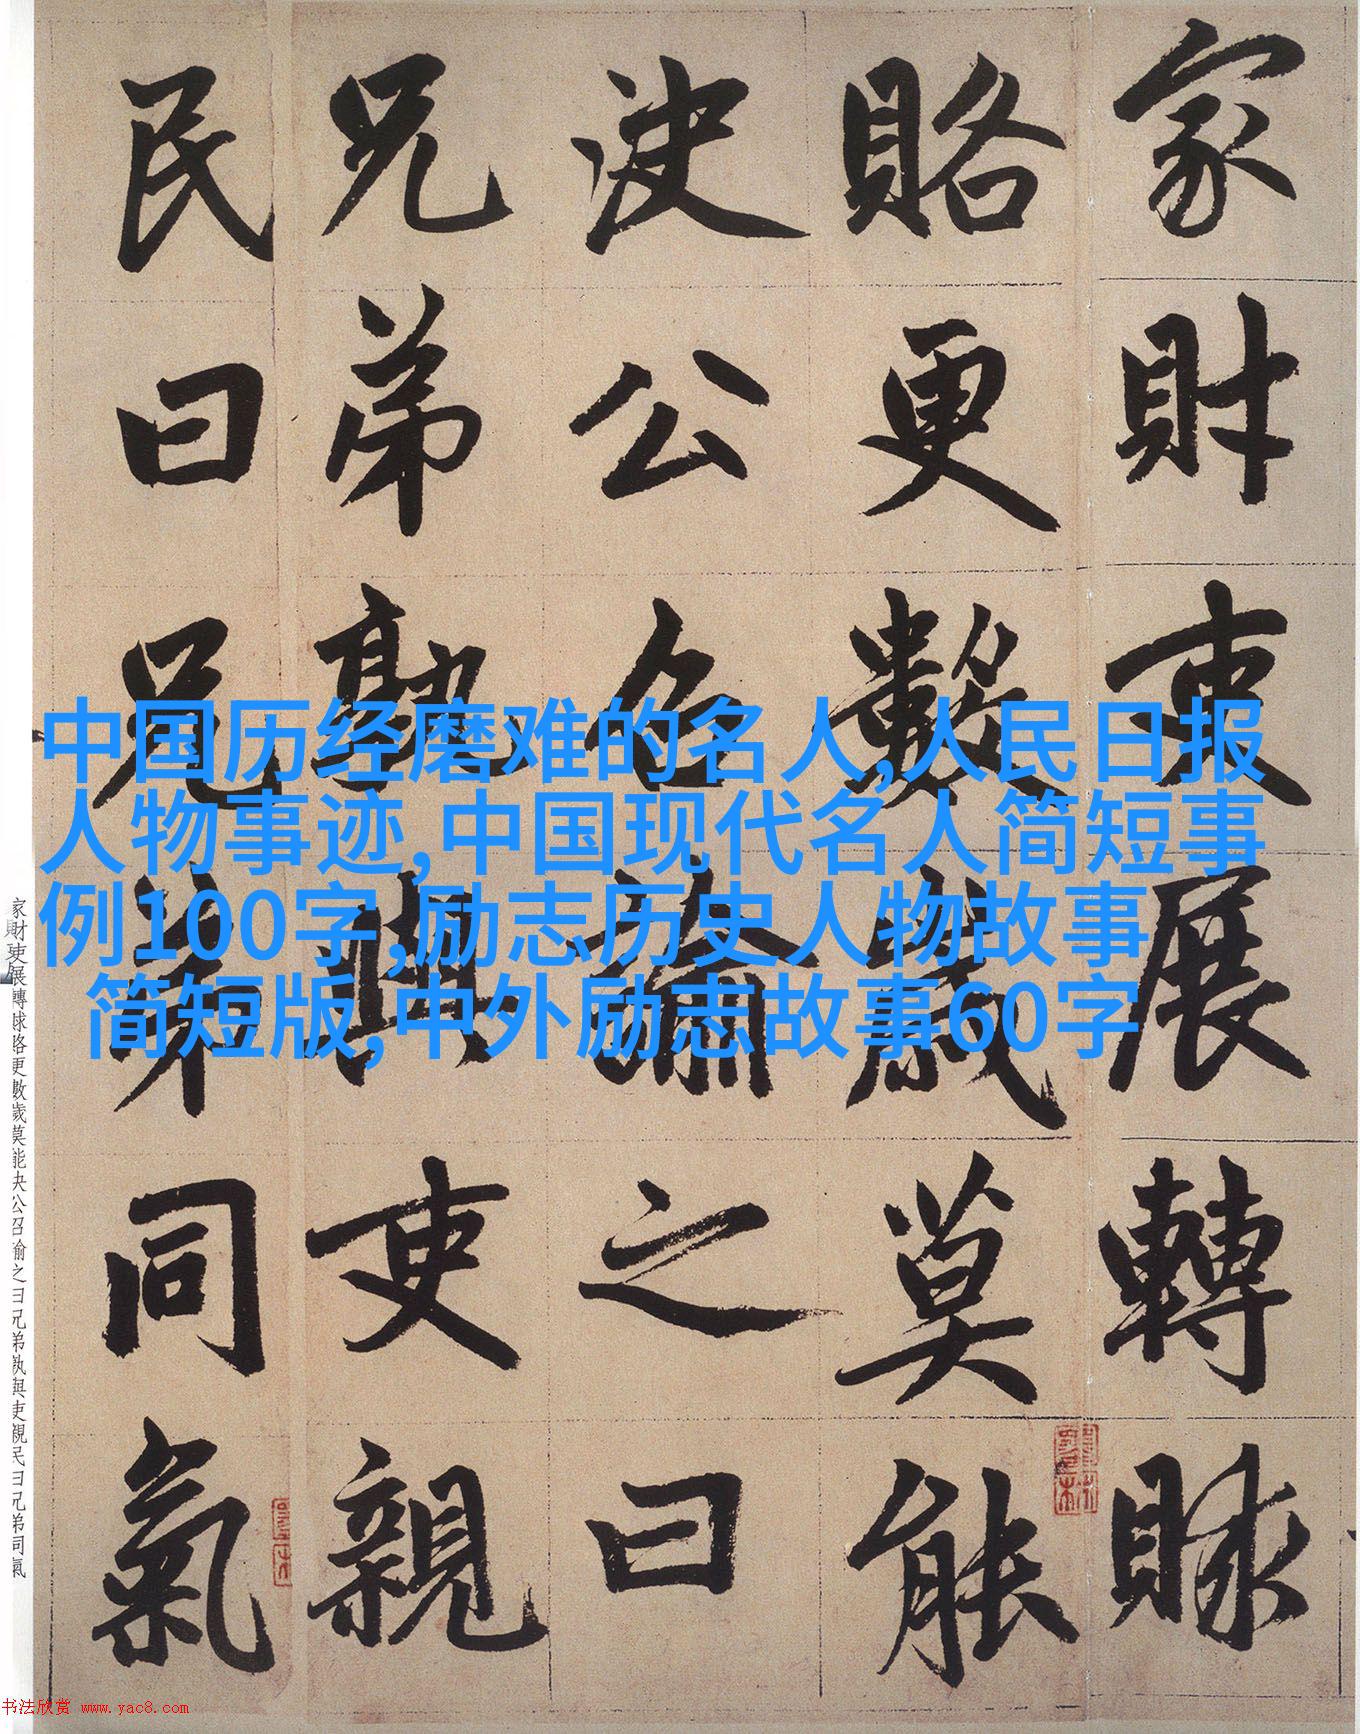 家財吏展轉賕
賂更數歲莫能
决公召諭之曰
兄弟孰與吏親
民曰兄弟同氣
中国历经磨难的名人,人民日报
人物事迹,中国现代名人简短事
例100字,励志历史人物故事
简短版,中外励志故事60字
家財吏展轉賕賂更數歲莫能决公召諭之曰兄弟孰與吏親民曰兄弟同氣
书法欣赏 www.yac8.com